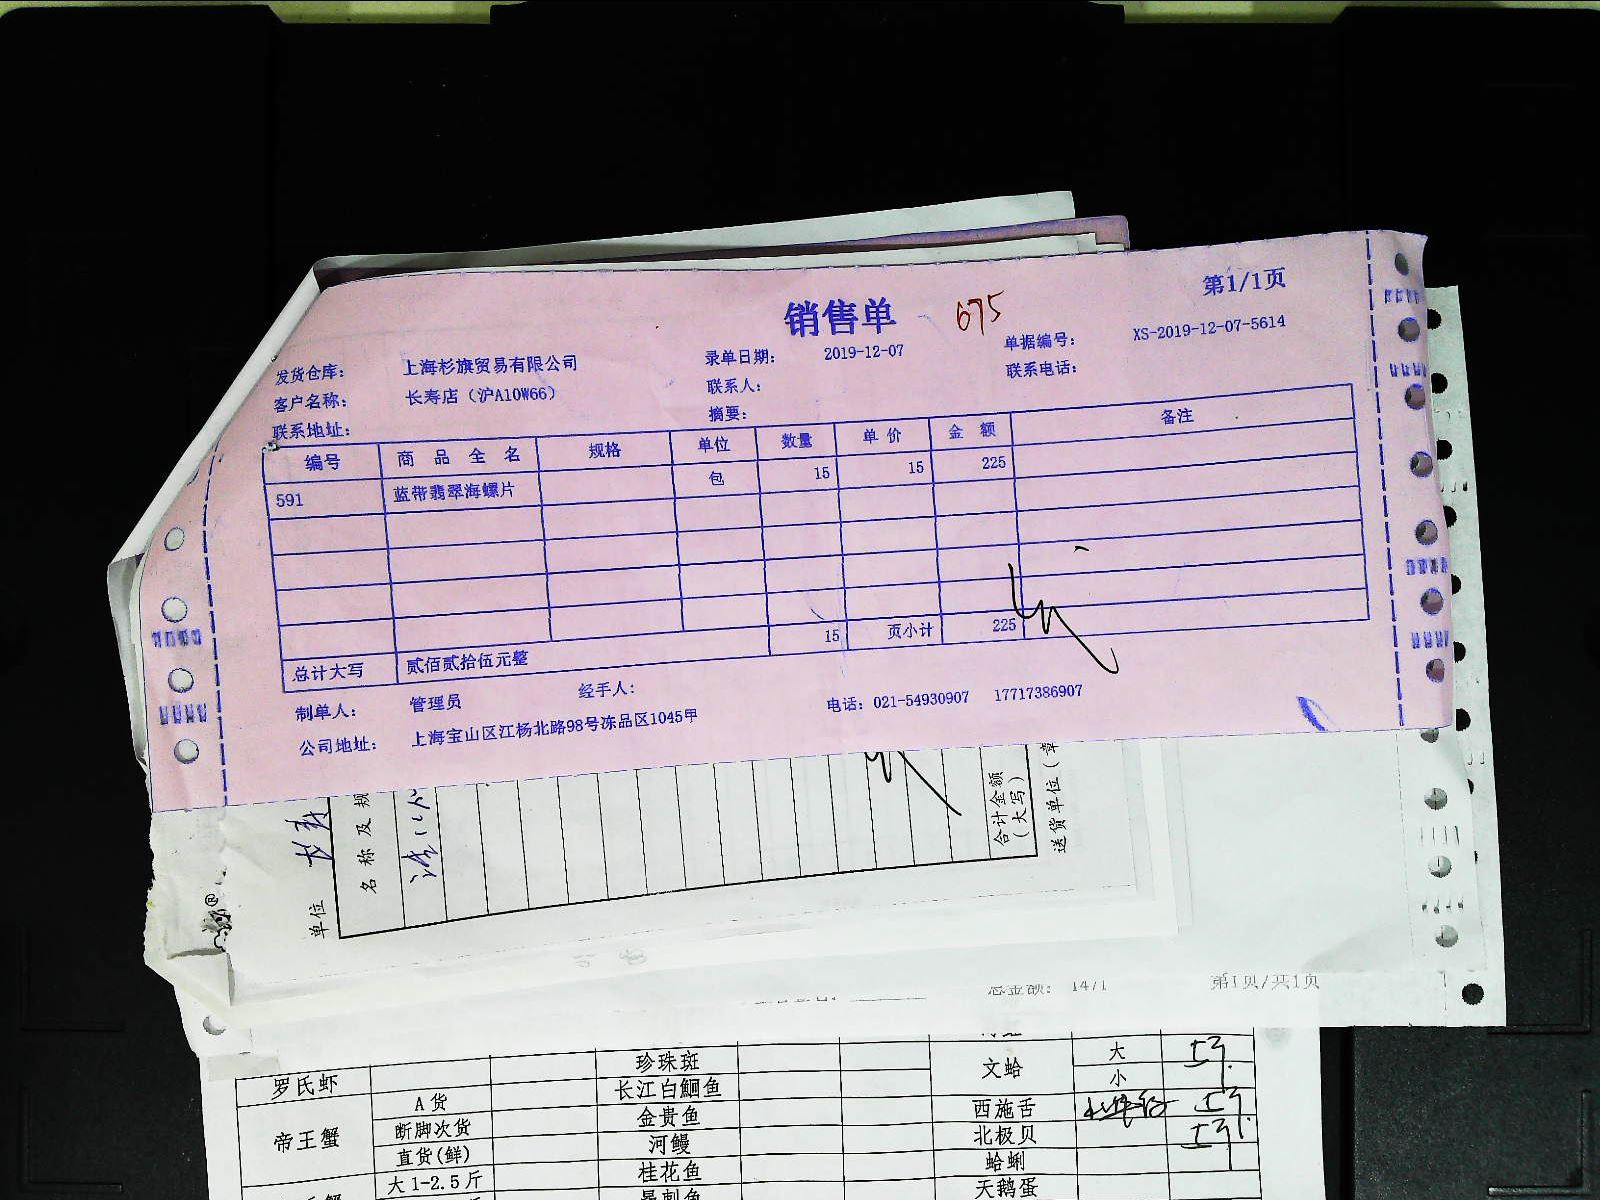 销售单
675
第1/1页
发货仓库： 上海杉旗贸易有限公司 录单日期： 2019-12-07 单据编号： XS-2019-12-07-5614
客户名称： 长寿店（沪A10W66） 联系人： 联系电话：
联系地址： 摘要：
编号 商品全名 规格 单位 数量 单价 金额 备注
591 蓝带翡翠海螺片 包 15 15 225
15 页小计 225
总计大写 贰佰贰拾伍元整
制单人： 管理员 经手人： 电话：021-54930907 17717386907
公司地址： 上海宝山区江杨北路98号冻品区1045甲
单位
名称及规
合计金额
（大写）
送货单位（章
总金额： 1471 第1页/共1页
罗氏虾 珍珠斑 文蛤 大
长江白鮰鱼 小
帝王蟹 A货 金贵鱼 西施舌
断脚次货 河鳗 北极贝
直货(鲜) 桂花鱼 蛤蜊
大1-2.5斤 天鹅蛋